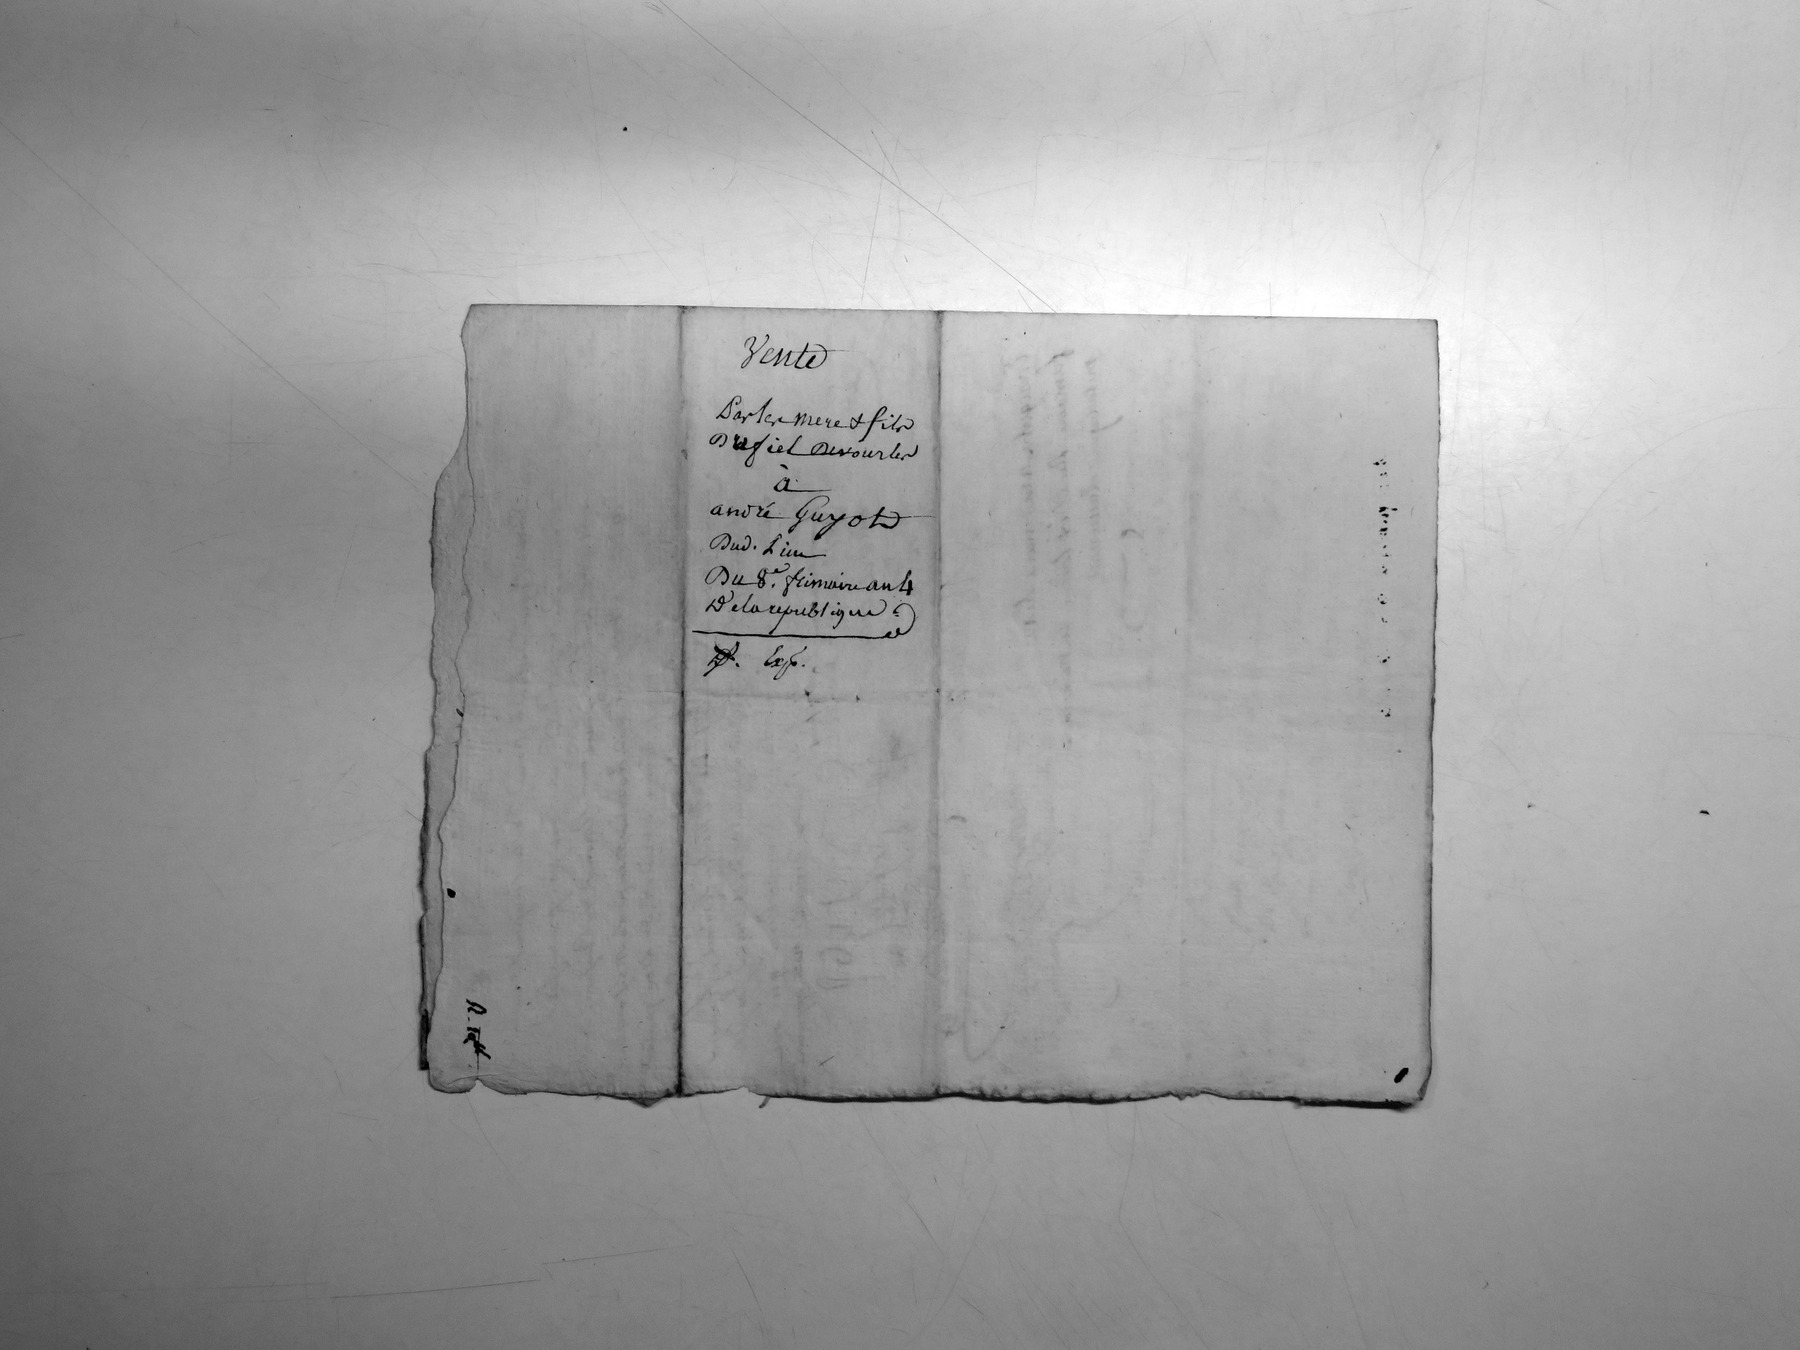 Vente
Par les mere & fils
Dufiet Devourles
à
andré Guyot
Dud. Lieu
Du 8e. frimaire an 4
De la république
Exp.